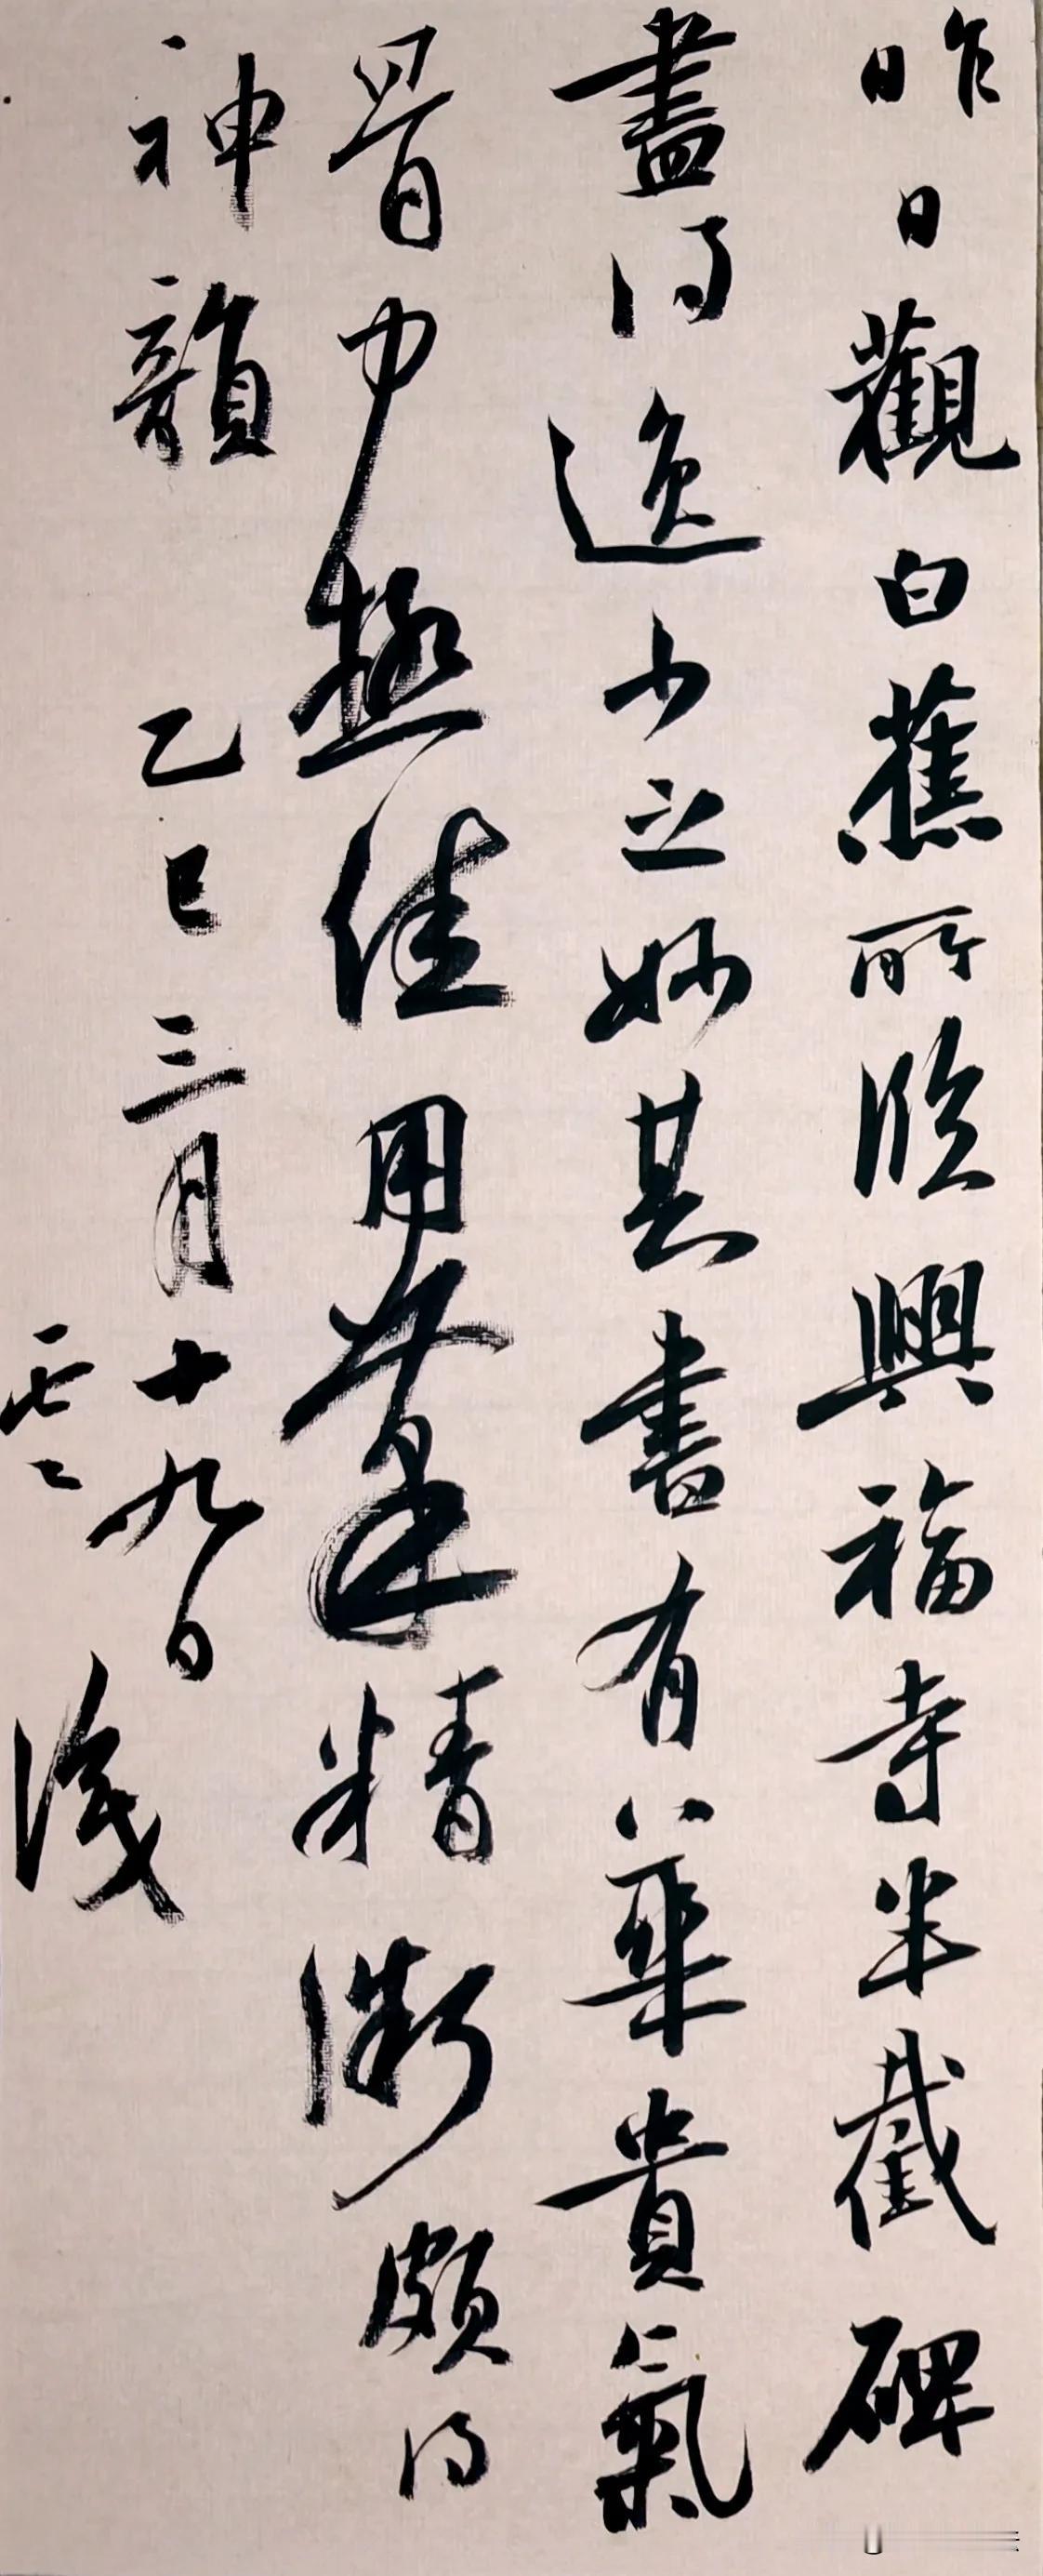 昨日觀白蕉所臨興福寺半截碑
盡得逸少之妙其書有華貴氣
骨力極佳用筆精微頗得
神韻
乙巳三月十九日